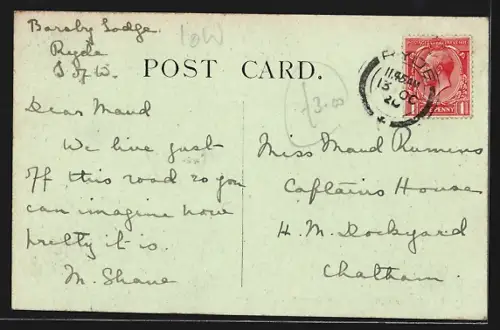 Barsby Lodge
Ryde
I of W.
IOW
POST CARD.
£3.00
RYDE
11.45AM
13 OC
20
Dear Maud
We live just
off this road so you
can imagine how
pretty it is.
M. Shane
Miss Maud Rumens
Captains House
H. M. Dockyard
Chatham.
1 PENNY 1